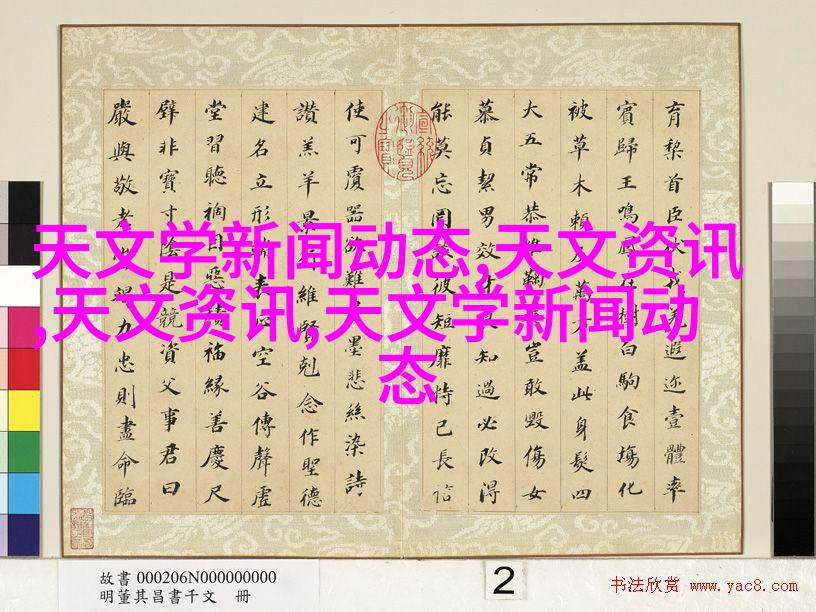 育黎首臣伏戎羌遐迩壹體率
賓歸王鳴鳳在樹白駒食場化
被草木賴及萬方蓋此身髮四
大五常恭惟鞠養豈敢毀傷女
慕貞絜男效才良知過必改得
能莫忘罔談彼短靡恃己長信
使可覆器欲難量墨悲絲染詩
讚羔羊景行維賢剋念作聖德
建名立形端表正空谷傳聲虛
堂習聽禍因惡積福緣善慶尺
璧非寶寸陰是競資父事君曰
嚴與敬孝當竭力忠則盡命臨
天文学新闻动态,天文资讯
,天文资讯,天文学新闻动
态
故書 000206N000000000
明董其昌書千文 冊
2
书法欣赏 www.yac8.com